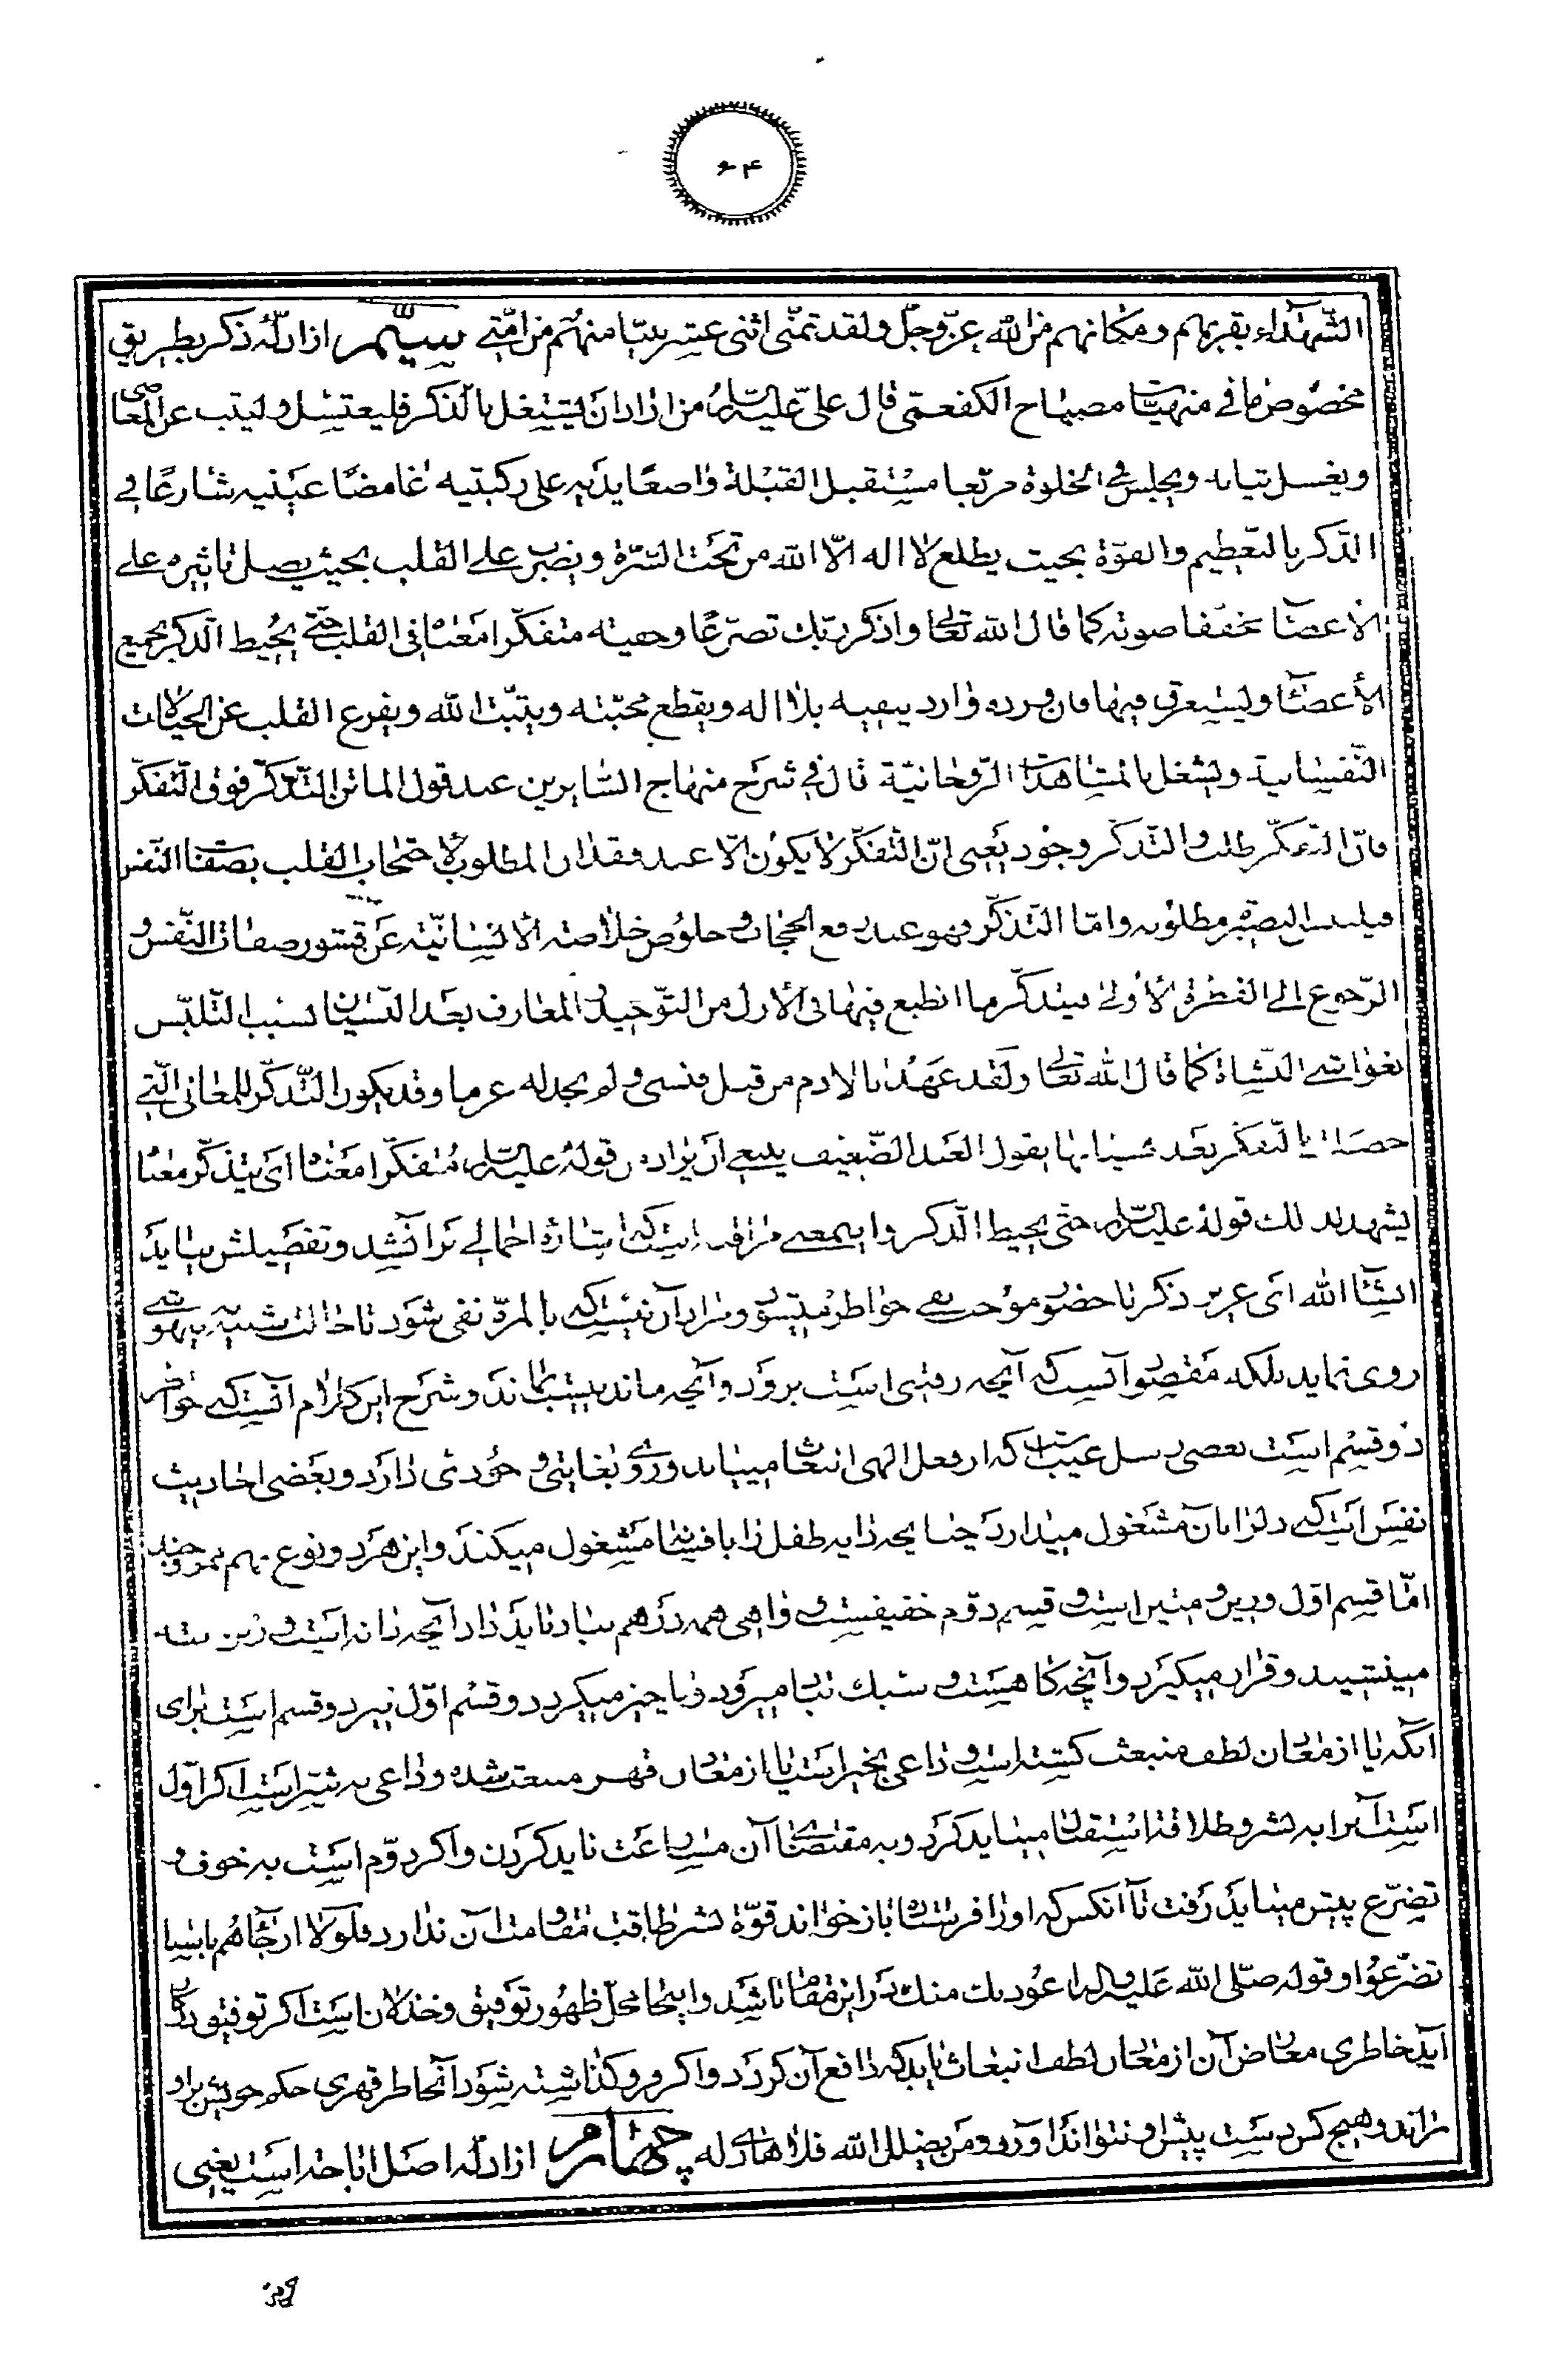 ۶۴
الشّهداء بقربهم ومكانهم من الله عزّ وجلّ ولقد تمنّى اثنى عشر نبيّا منهم من امّتى سيّم از ادلّهٔ ذكر بطريق
مخصوص ما فى منهيّات مصباح الكفعمى قال علىّ عليه السّلام من اراد ان يشتغل بالذكر فليغتسل وليتب عن المعاصى
ويغسل ثيابه ويجلس فى الخلوة مربّعا مستقبل القبلة واضعًا يديه على ركبتيه غامضًا عينيه شارعًا فى
الذكر بالتعظيم والقوّة بحيث يطلع لا اله الّا الله من تحت السّرّة ويضرب على القلب بحيث يصل تاثيره على
الاعضا مخففا صوته كما قال الله تعالى واذكر ربّك تضرّعًا وخيفه متفكّرا معناه فى القلب حتّى يحيط الذكر بجميع
الأعضا وليستغرق فيها فان ورده وارد ينفيه بلا اله ويقطع محبّته ويثبّت الله ويفرغ القلب عن الخيالات
النّفسانية ويشغل بالمشاهدات الرّوحانيّة قال فى شرح منهاج السّايرين عند قول الماتن التّذكّر فوق التفكّر
فانّ التفكّر طلب والتّذكّر وجود يعنى انّ التفكّر لا يكون الّا عند فقدان المطلوب لاحتجاب القلب بصفات النّفس
فيلتمس البصيرة مطلوبه وامّا التّذكّر فهو عند رفع الحجاب وخلوص خلاصة الانسانيّة عن قشور صفات النّفس و
الرّجوع الى الفطرة الاولى فيتذكّر ما انطبع فيها فى الازل من التّوحيد والمعارف بعد النّسيان بسبب التّلبّس
بغواشى النّشاة كما قال الله تعالى ولقد عهدنا الى ادم من قبل فنسى ولم نجد له عزما وقد يكون التّذكّر للمعانى الّتى
حصلت بالتفكّر بعد نسيانها يقول العبد الضّعيف ينبغى ان يراد من قوله عليه السّلام متفكّرا معناه اى يتذكّر معناه
يشهد لذلك قوله عليه السّلام حتّى يحيط الذّكر وا بمعنى مراقبه است كه اشارهٔ اجمالى بر آن شد وتفصيلش بيايد
انشاء الله اى عزيز ذكر با حضور موجب نفى خواطر ميشود ومراد آن نيست كه بالمرّه نفى شود تا حالت شبيه به بيهوشى
روى نمايد بلكه مقصود آنست كه آنچه رفتنى است برود وآنچه ماندنيست بماند وشرح اين كلام آنست كه خواطر
دو قسم است بعضى رسل غيبت كه از فعل الهى انبعاث مييابد وروى بغايتى وحدثى دارد وبعضى احاديث
نفس است كه دلرا بآن مشغول ميدارد چنانچه دايه طفل را بافسانها مشغول ميكند واين هر دو نوع بهم ممزوجند
امّا قسم اوّل وزين ومتين است وقسم دوّم خفيفست وواهى همه درهم بباد بايد داد آنچه دانه است وزين
مينشيند وقرار ميگيرد وآنچه كاه است وسبك بباد ميرود وناچيز ميگردد وقسم اوّل نيز دو قسم است براى
آنكه يا از معدن لطف منبعث گشته است وداعى بخير است يا از معدن قهر منبعث شده وداعى به شرّ است اگر اوّل
است آنرا به بشر وطلاقت استقبال ميبايد كرد وبه مقتضاى آن مسارعت بايد كردن واگر دوّم است به خوف و
تضرّع پيش ميبايد رفت تا آنكس كه او را فرستاده باز خواند قوّة بشر طاقت مقاومت آن ندارد فلولا اذ جائهم باسنا
تضرّعوا وقوله صلّى الله عليه وآله اعوذ بك منك در اين مقام باشد واينجا محلّ ظهور توفيق وخذلان است اگر توفيق در كار
آيد خاطرى معارض آن از معدن لطف انبعاث يابد كه دافع آن گردد واگر فرو گذاشته شود آنخاطر قهرى حكم خويش براو
براند وهيچ كس دست پيش او نتواند آورد ومن يضلل الله فلا هادى له چهارم از ادلّه اصل اباحه است يعنى